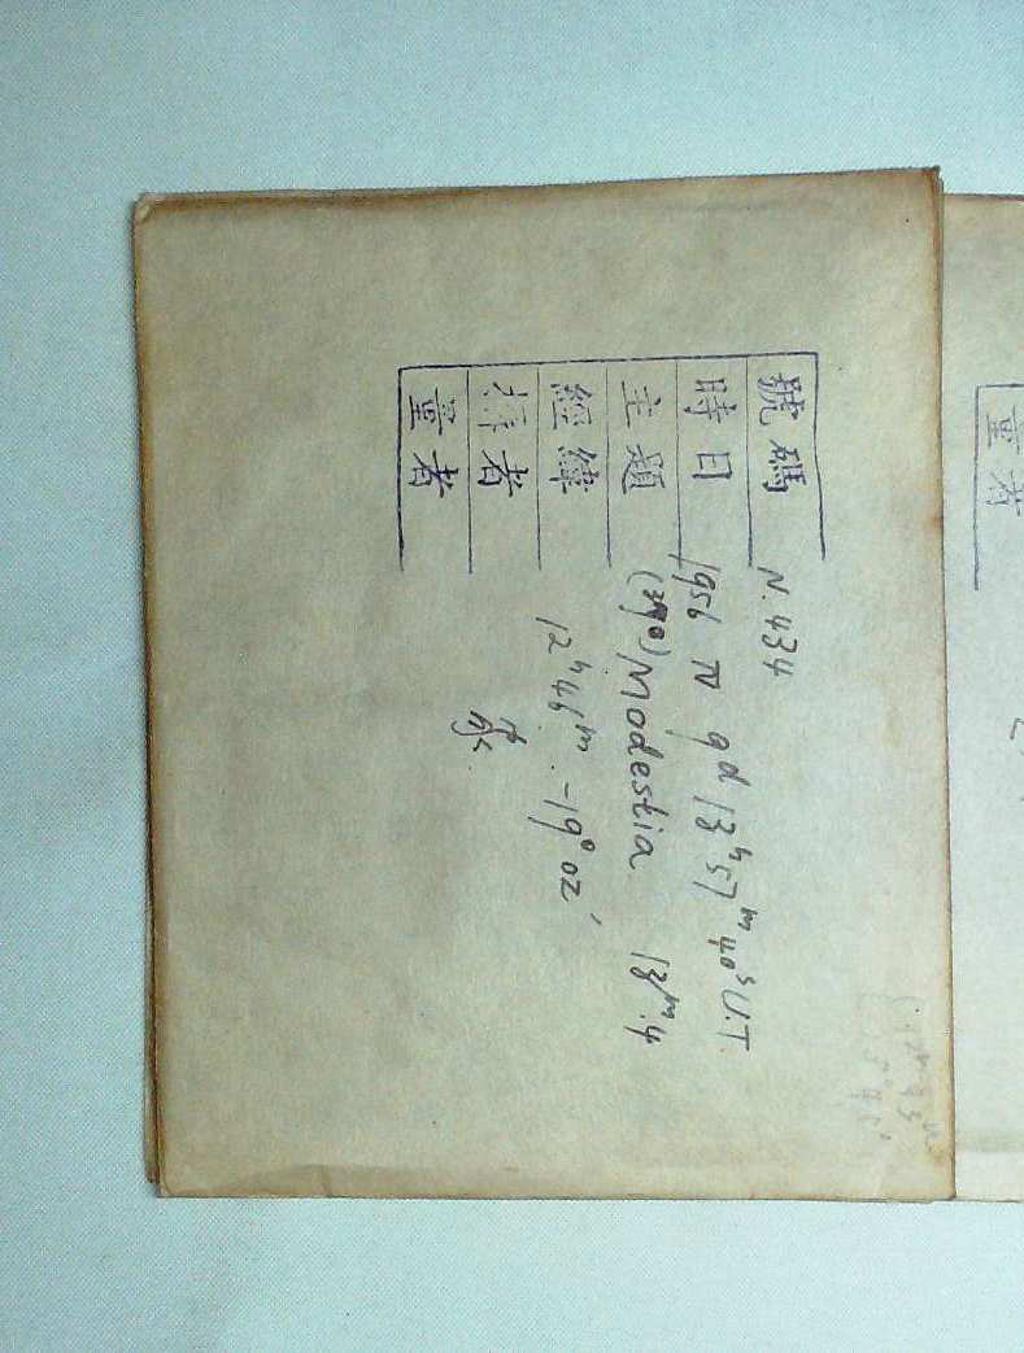 號碼 N. 434
時日 1956 IV 9d 13h57m40sU.T
主題 (370) Modestia 13m.4
經緯 12h46m. -19°02′
者
量者
量者